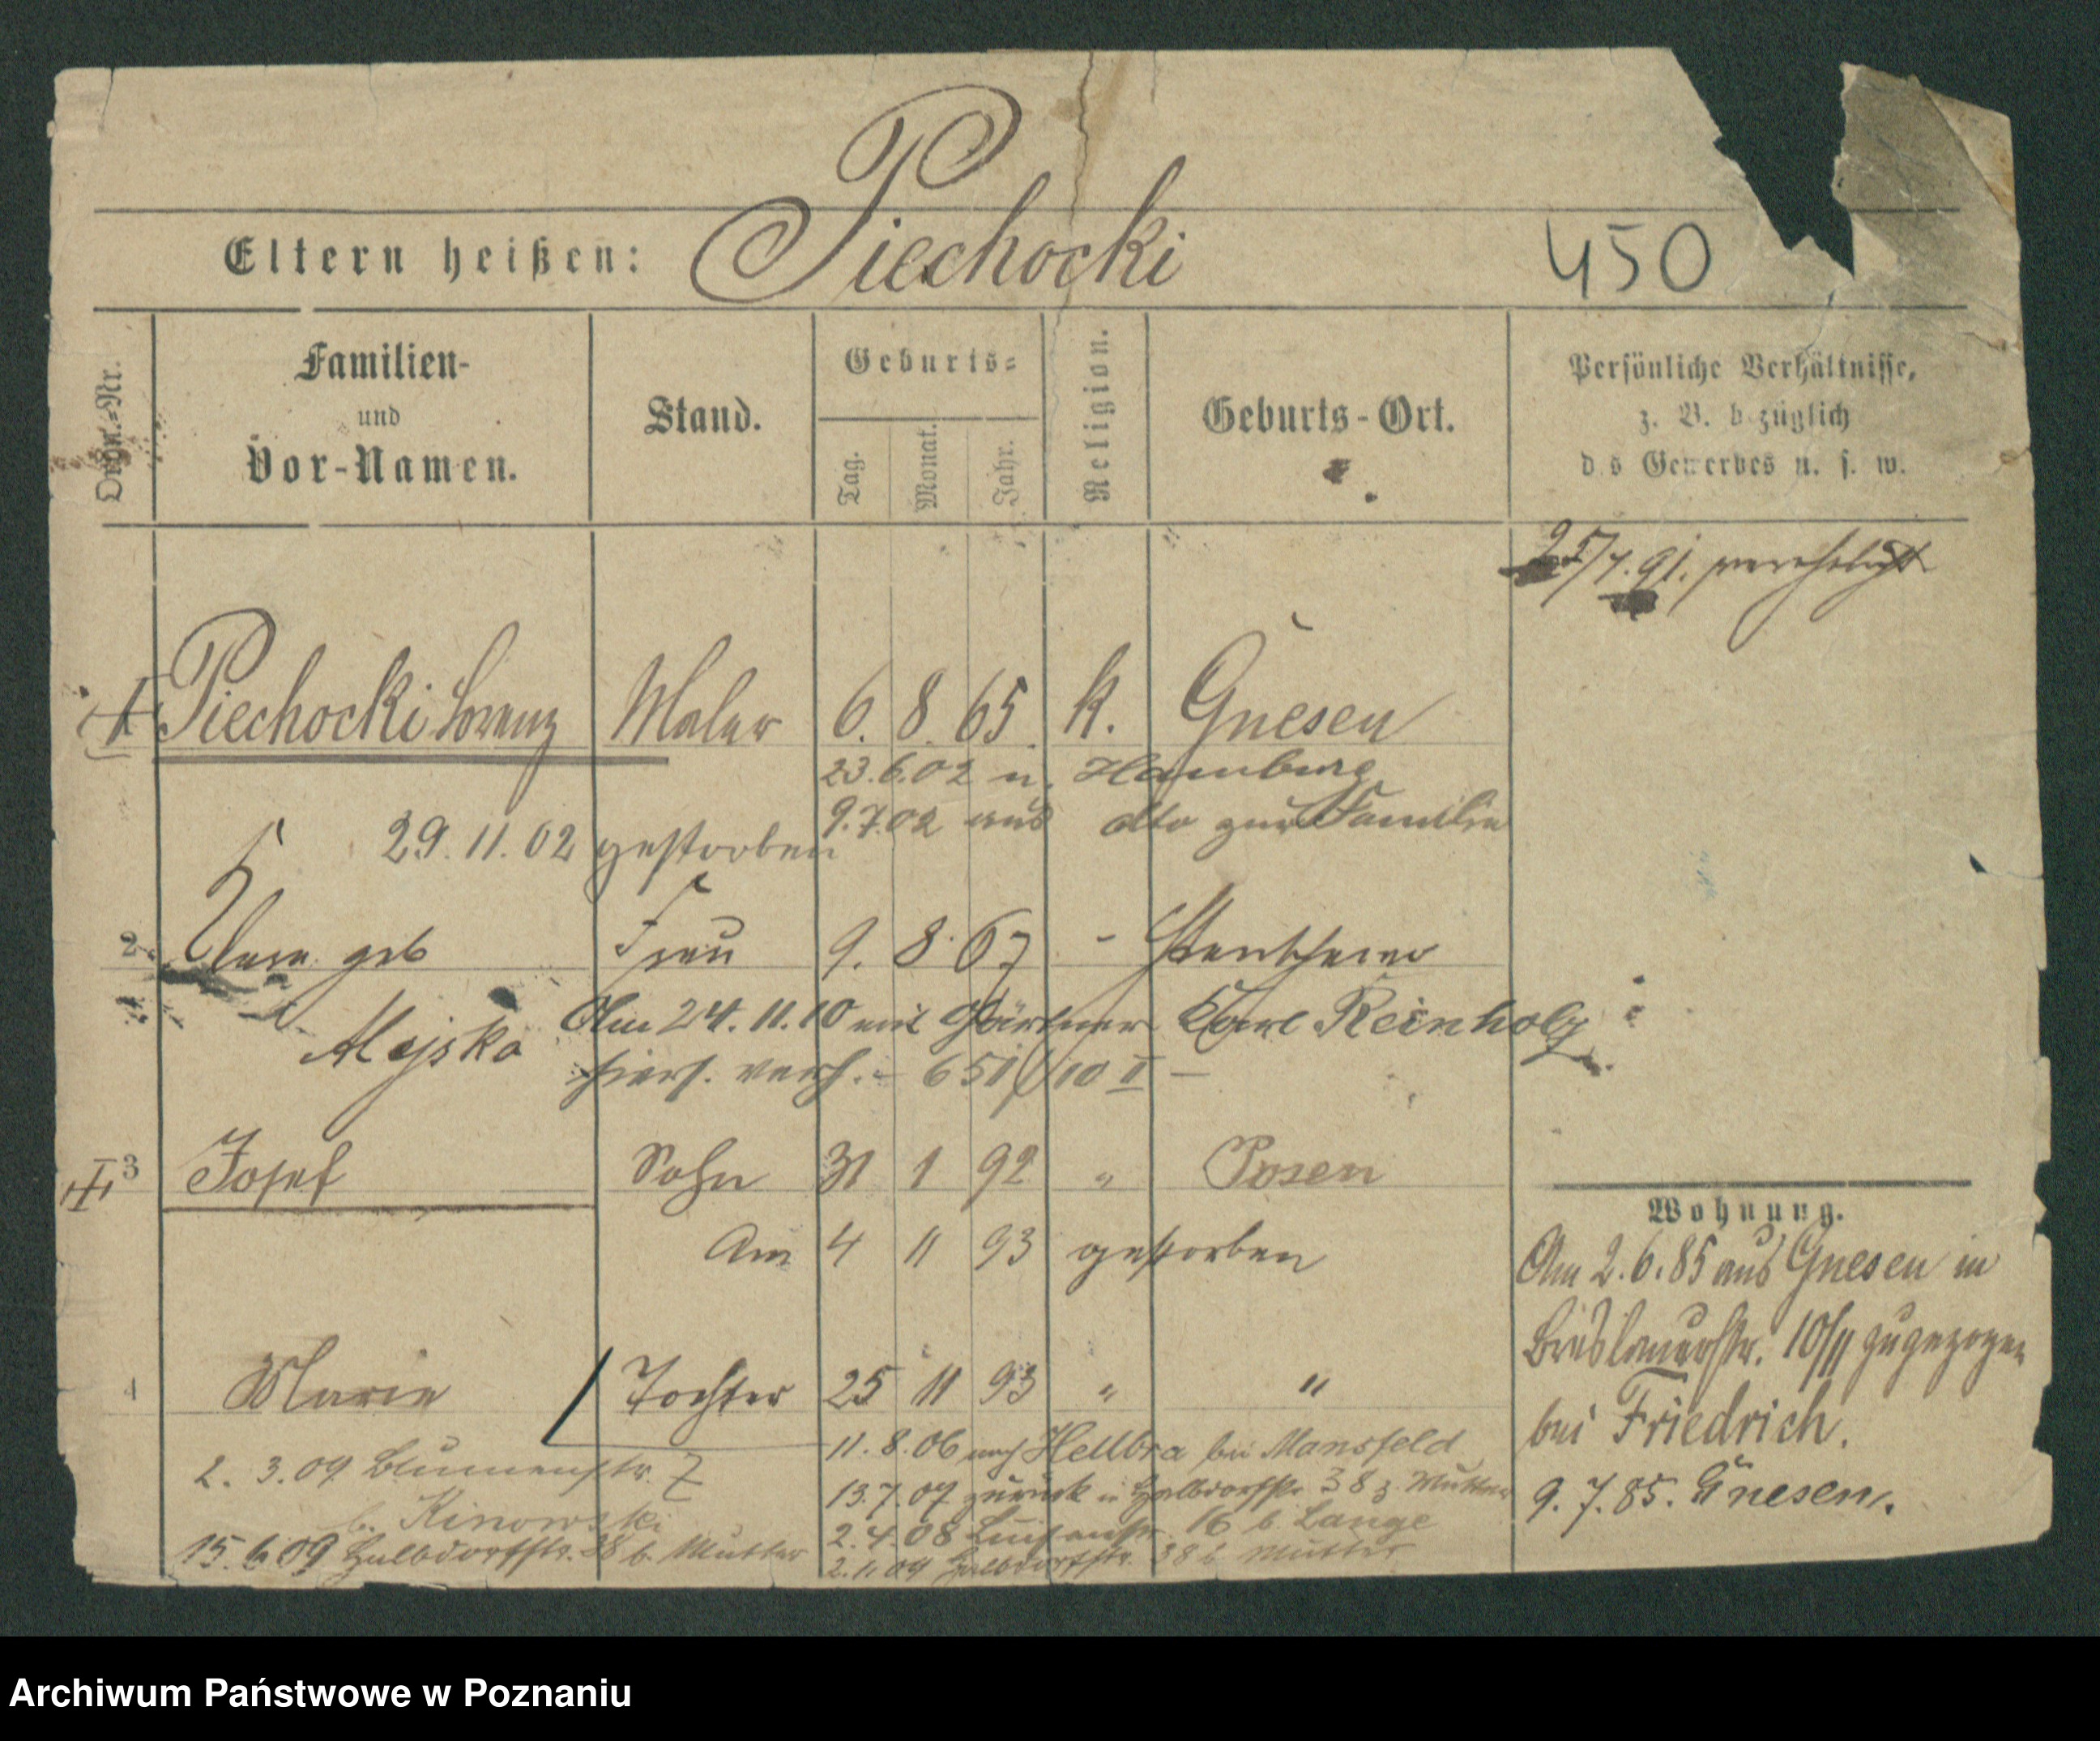 Piechocki
Eltern heißen:
450
Ordn.=Nr.
Familien-
und
Vor-Namen.
Stand.
Geburts=
Tag.
Monat.
Jahr.
Religion.
Geburts-Ort.
Persönliche Verhältnisse,
z. B. b züglich
d s Gewerbes u. s. w.
25/7. 91. verehelicht
1 Piechocki Lorenz Maler 6. 8. 65. k. Gnesen
23.6.02 n. Hamburg
9.7.02 aus dto zur Familie
29. 11. 02 gestorben
2. geb Frau 9. 8. 67 -
Am 24. 11. 10 mit Gärtner Karl Reinholz
hiers. verh. - 651/10 II -
3 Josef Sohn 31 1 92 " Posen
Am 4 11 93 gestorben
4 Marie Tochter 25 11 93 " "
11. 8. 06 nach Hellbra bei Mansfeld
2. 3. 09 Blumenstr. 7
b. Kinowski
13. 7. 07 zurück n Halbdorfstr. 38 z. Mutter
2. 4. 08 Luisenstr. 16 b. Lange
15. 6. 09 Halbdorfstr. 38 b. Mutter
2. 1. 09 Halbdorfstr. 38 b Mutter
Wohnung.
Am 2. 6. 85 aus Gnesen in
Breslauerstr. 10/II zugezogen
bei Friedrich.
9. 7. 85. Gnesen.
Archiwum Państwowe w Poznaniu